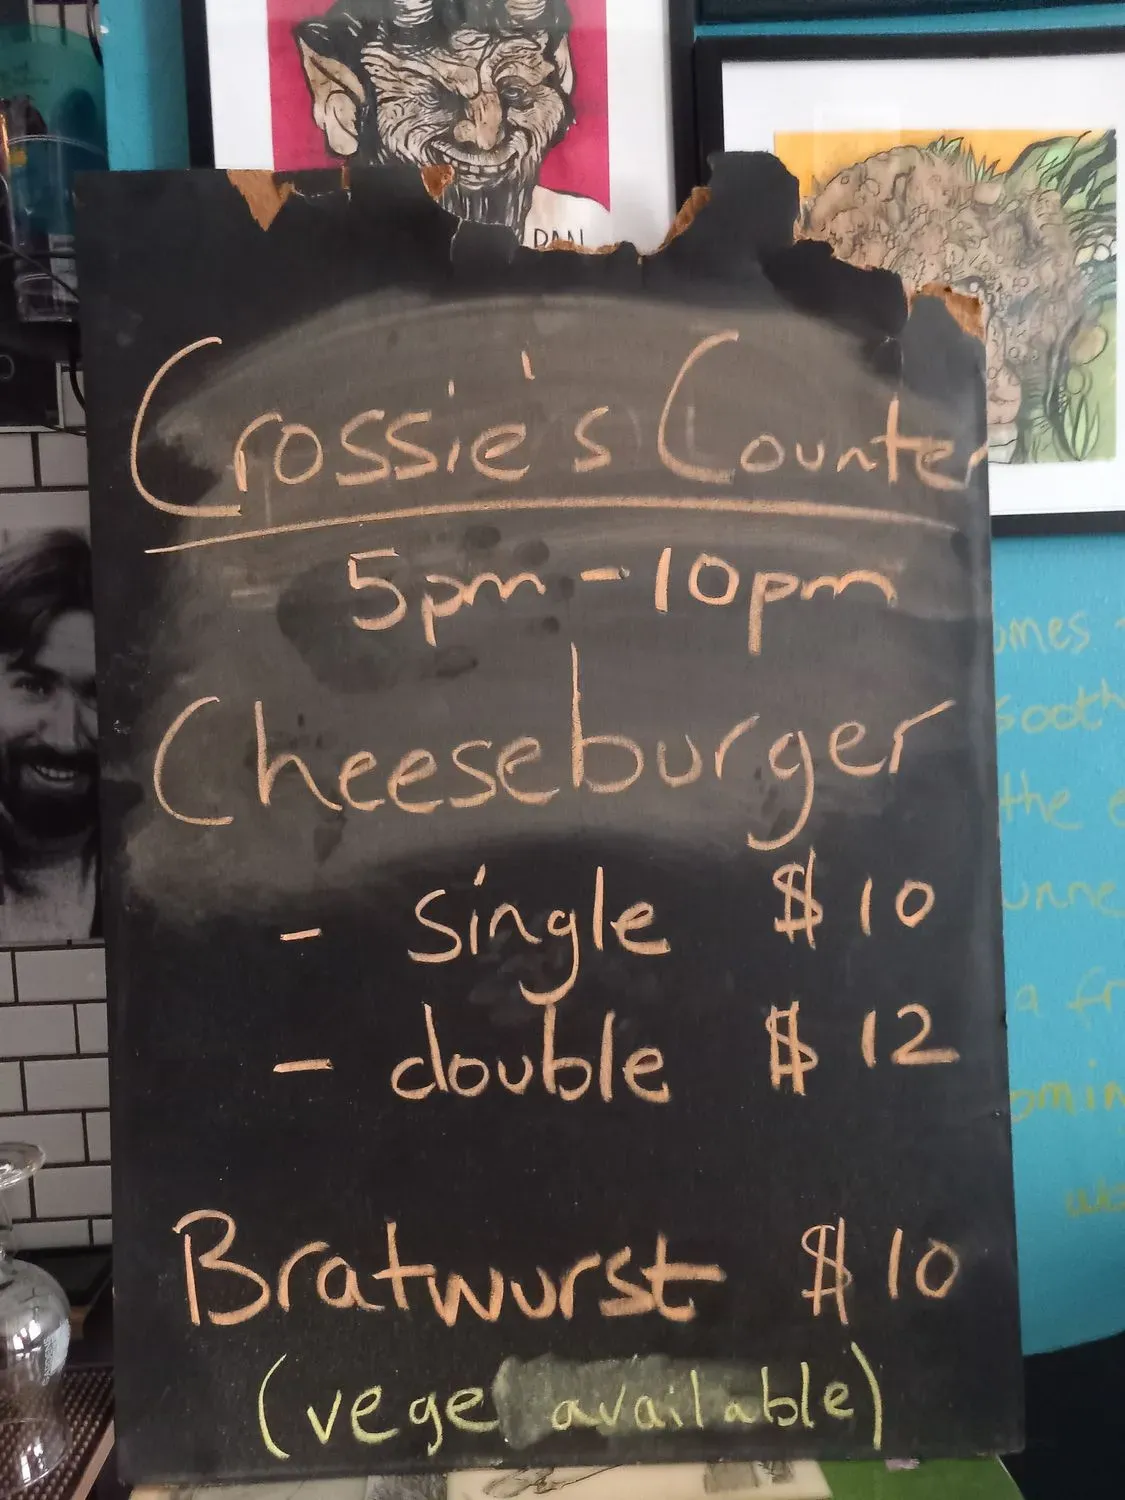 PAN
Crossie's Counter
5pm - 10pm
Cheeseburger
- single $10
- double $12
Bratwurst $10
(vege available)
the
a